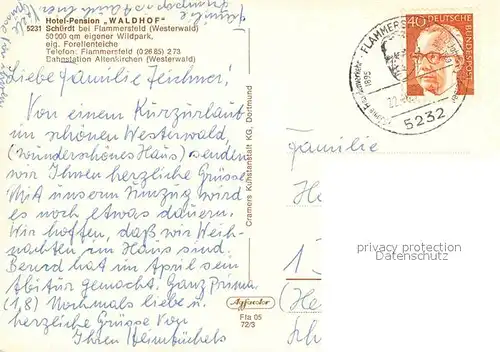 Hotel-Pension „WALDHOF"
5231 Schürdt bei Flammersfeld (Westerwald)
50 000 qm eigener Wildpark,
eig. Forellenteiche
Telefon: Flammersfeld (0 26 85) 2 73
Bahnstation Altenkirchen (Westerwald)
Liebe Familie
Von einem Kurzurlaub
im schönen Westerwald,
(wunderschönes Haus) senden
wir Ihnen herzliche Grüsse.
Mit unserm Umzug wird
es noch etwas dauern.
Wir hoffen, daß wir Weih-
nachten im Haus sind.
Bernd hat im April sein
Abitur gemacht. Ganz prima
(1,8) Nochmals liebe u.
herzliche Grüsse von
Ihren
Cramers Kunstanstalt KG, Dortmund
Ffa 05
72/3
FLAMMERS
1895
5232
40
DEUTSCHE
BUNDESPOST
Familie
He
1
(He
Sch
privacy protection
Datenschutz